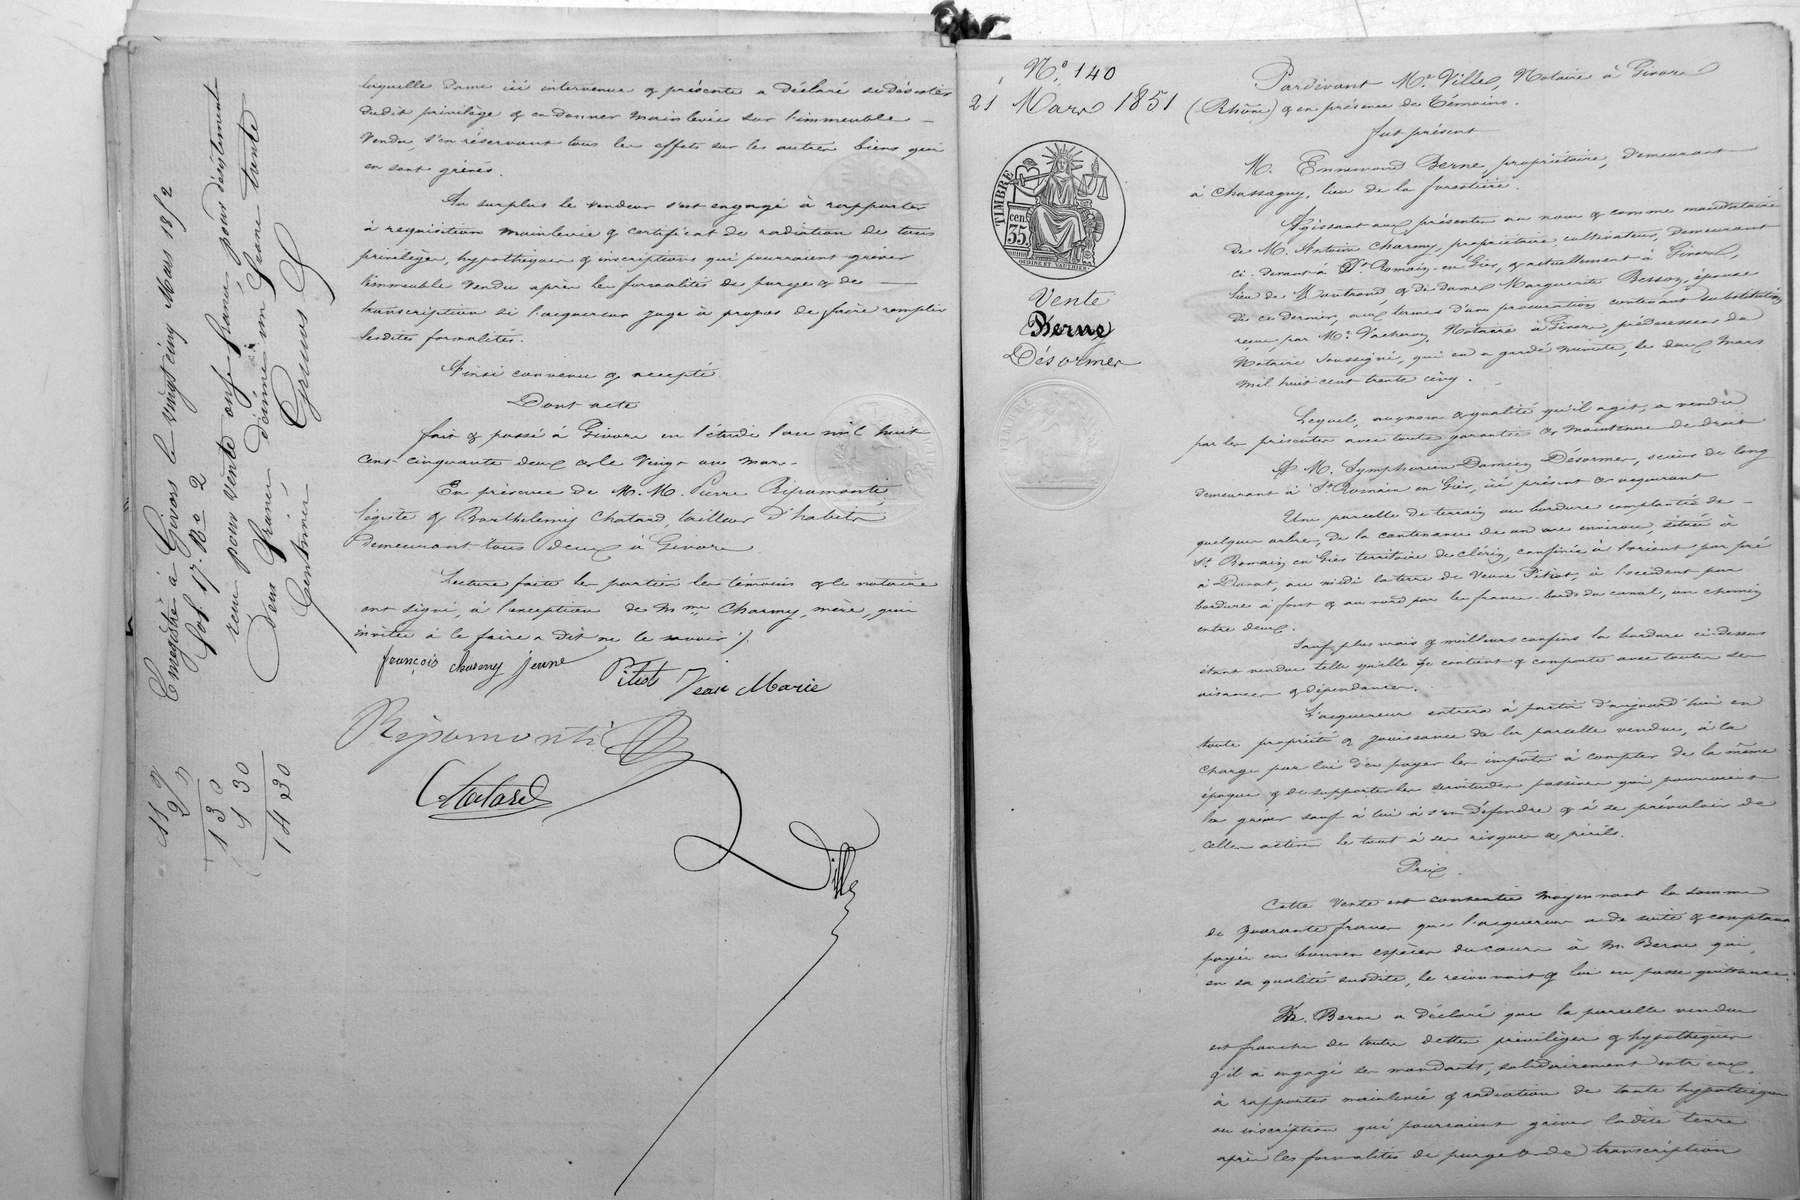 laquelle dame ici intervenue & présente a déclaré se désister
dudit privilège & en donner mainlevée sur l'immeuble
vendu, s'en réservant tous les effets sur les autres biens qui
en sont grévés.
Au surplus le vendeur s'est engagé à rapporter
à requisition mainlevée & certificat de radiation de tous
privilèges, hypothèques & inscriptions qui pourraient gréver
l'immeuble vendu après les formalités de purge & de
transcription si l'acquereur juge à propos de faire remplir
lesdites formalités.
Ainsi convenu & accepté
Dont acte
fait & passé à Givors en l'étude l'an mil huit
cent cinquante deux & le vingt un mars
En présence de M.M. Pierre Ripamonti,
légiste & Barthélemy Chatard, tailleur d'habits
demeurant tous deux à Givors
Lecture faite les parties les témoins & le notaire
ont signé, à l'exception de Mme Charmy, mère, qui
invitée à le faire a dit ne le savoir
françois charmy jeune
Pitiot Jean Marie
Ripamonti
Chatard
Ville
Enregistré à Givors le vingt cinq Mars 1852
fol. 17. Ro 2
reçu pour vente onze francs, pour désistement
deux francs, décime un franc trente
centimes
11 "
2 "
13 0
1 30
14 30
N° 140
21 Mars 1851
TIMBRE
35 cen.
OUDINE ET VAUTHIER
Vente
Berne
Désormer
Pardevant Me Ville, Notaire à Givors
(Rhône) & en présence de témoins.
fut présent
M. Ennemond Berne, propriétaire, demeurant
à Chassagny, lieu de la forestière.
Agissant aux présentes au nom & comme mandataire
de M. Antoine Charmy, propriétaire cultivateur, demeurant
ci-devant à St Romain en Gier, & actuellement à Givors,
lieu de & de dame Marguerite Besson, épouse
de ce dernier, aux termes d'une procuration contenant substitution
reçue par Me Vacheron, Notaire à Givors, prédécesseur du
Notaire soussigné, qui en a gardé minute, le deux mars
mil huit cent trente cinq.
Lequel, au nom & qualité qu'il agit, a vendu
par les présentes avec toute garantie & maintenue de droit
A M. Symphorien Damien Désormer, scieur de long
demeurant à St Romain en Gier, ici présent & acquerant
Une parcelle de terrain ou bordure complantée de
quelques arbres, de la contenance de un are environ, située à
St Romain en Gier territoire de clérin, confinée à l'orient par pré
à Durat, au midi la terre de veuve Pitiot, à l'occident par
bordure à font & au nord par les francs-bords du canal, un chemin
entre deux.
Sauf plus vrais & meilleurs confins la bordure ci-dessus
étant vendue telle qu'elle se contient & comporte avec toutes ses
aisances & dépendances.
L'acquereur entrera à partir d'aujourd'hui en
toute propriété & jouissance de la parcelle vendue, à la
charge par lui d'en payer les impôts à compter de la même
époque & de supporter les servitudes passives qui pourraient
la gréver sauf à lui à s'en défendre & à se prévaloir de
celles actives le tout à ses risques & périls.
Prix.
Cette vente est consentie moyennant la somme
de quarante francs que l'acquereur a de suite & comptant
payée en bonnes espèces du cours à M. Berne qui,
en sa qualité susdite, le reconnait & lui en passe quittance.
M. Berne a déclaré que la parcelle vendue
est franche de toutes dettes privilèges & hypothèques
q'il a engagé ses mandants, solidairement entr'eux
à rapporter mainlevée & radiation de toute hypothèque
ou inscription qui pourraient gréver ladite terre
après les formalités de purge & de transcription